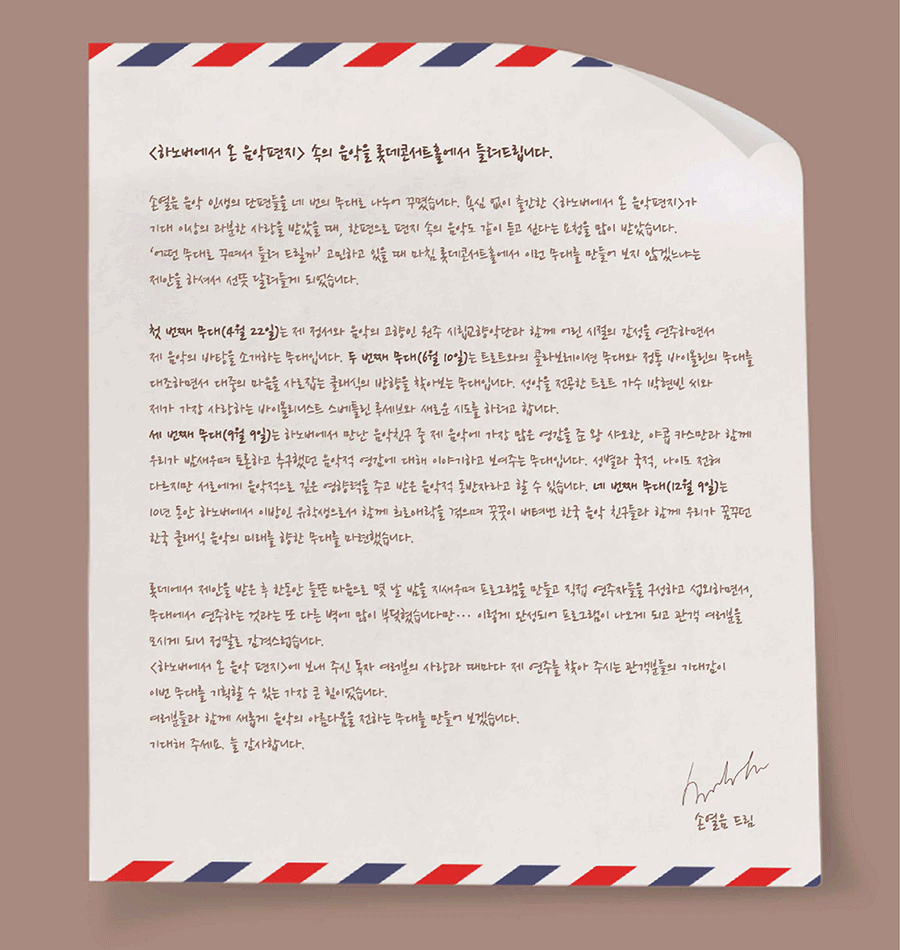 <하노버에서 온 음악편지> 속의 음악을 롯데콘서트홀에서 들려드립니다.
손열음 음악 인생의 단편들을 네 번의 무대로 나누어 꾸몄습니다. 욕심 없이 출간한 <하노버에서 온 음악편지>가
기대 이상의 과분한 사랑을 받았을 때, 한편으로 편지 속의 음악도 같이 듣고 싶다는 요청을 많이 받았습니다.
'어떤 무대로 꾸며서 들려 드릴까' 고민하고 있을 때 마침 롯데콘서트홀에서 이런 무대를 만들어 보지 않겠느냐는
제안을 하셔서 선뜻 달려들게 되었습니다.
첫 번째 무대(4월 22일)는 제 정서와 음악의 고향인 원주 시립교향악단과 함께 어린 시절의 감성을 연주하면서
제 음악의 바탕을 소개하는 무대입니다. 두 번째 무대(6월 10일)는 트로트와의 콜라보레이션 무대와 정통 바이올린의 무대를
대조하면서 대중의 마음을 사로잡는 클래식의 방향을 찾아보는 무대입니다. 성악을 전공한 트로트 가수 박현빈 씨와
제가 가장 사랑하는 바이올리니스트 스베틀린 루세브와 새로운 시도를 하려고 합니다.
세 번째 무대(9월 9일)는 하노버에서 만난 음악친구 중 제 음악에 가장 많은 영감을 준 왕 샤오한, 야콥 카스만과 함께
우리가 밤새우며 토론하고 추구했던 음악적 영감에 대해 이야기하고 보여주는 무대입니다. 성별과 국적, 나이도 전혀
다르지만 서로에게 음악적으로 깊은 영향력을 주고 받은 음악적 동반자라고 할 수 있습니다. 네 번째 무대(12월 9일)는
10년 동안 하노버에서 이방인 유학생으로서 함께 희로애락을 겪으며 꿋꿋이 버텨낸 한국 음악 친구들과 함께 우리가 꿈꾸던
한국 클래식 음악의 미래를 향한 무대를 마련했습니다.
롯데에서 제안을 받은 후 한동안 들뜬 마음으로 몇 날 밤을 지새우며 프로그램을 만들고 직접 연주자들을 구성하고 섭외하면서,
무대에서 연주하는 것과는 또 다른 벽에 많이 부딪혔습니다만··· 이렇게 완성되어 프로그램이 나오게 되고 관객 여러분을
모시게 되니 정말로 감격스럽습니다.
<하노버에서 온 음악 편지>에 보내 주신 독자 여러분의 사랑과 때마다 제 연주를 찾아 주시는 관객분들의 기대감이
이번 무대를 기획할 수 있는 가장 큰 힘이었습니다.
여러분들과 함께 새롭게 음악의 아름다움을 전하는 무대를 만들어 보겠습니다.
기대해 주세요. 늘 감사합니다.
손열음 드림